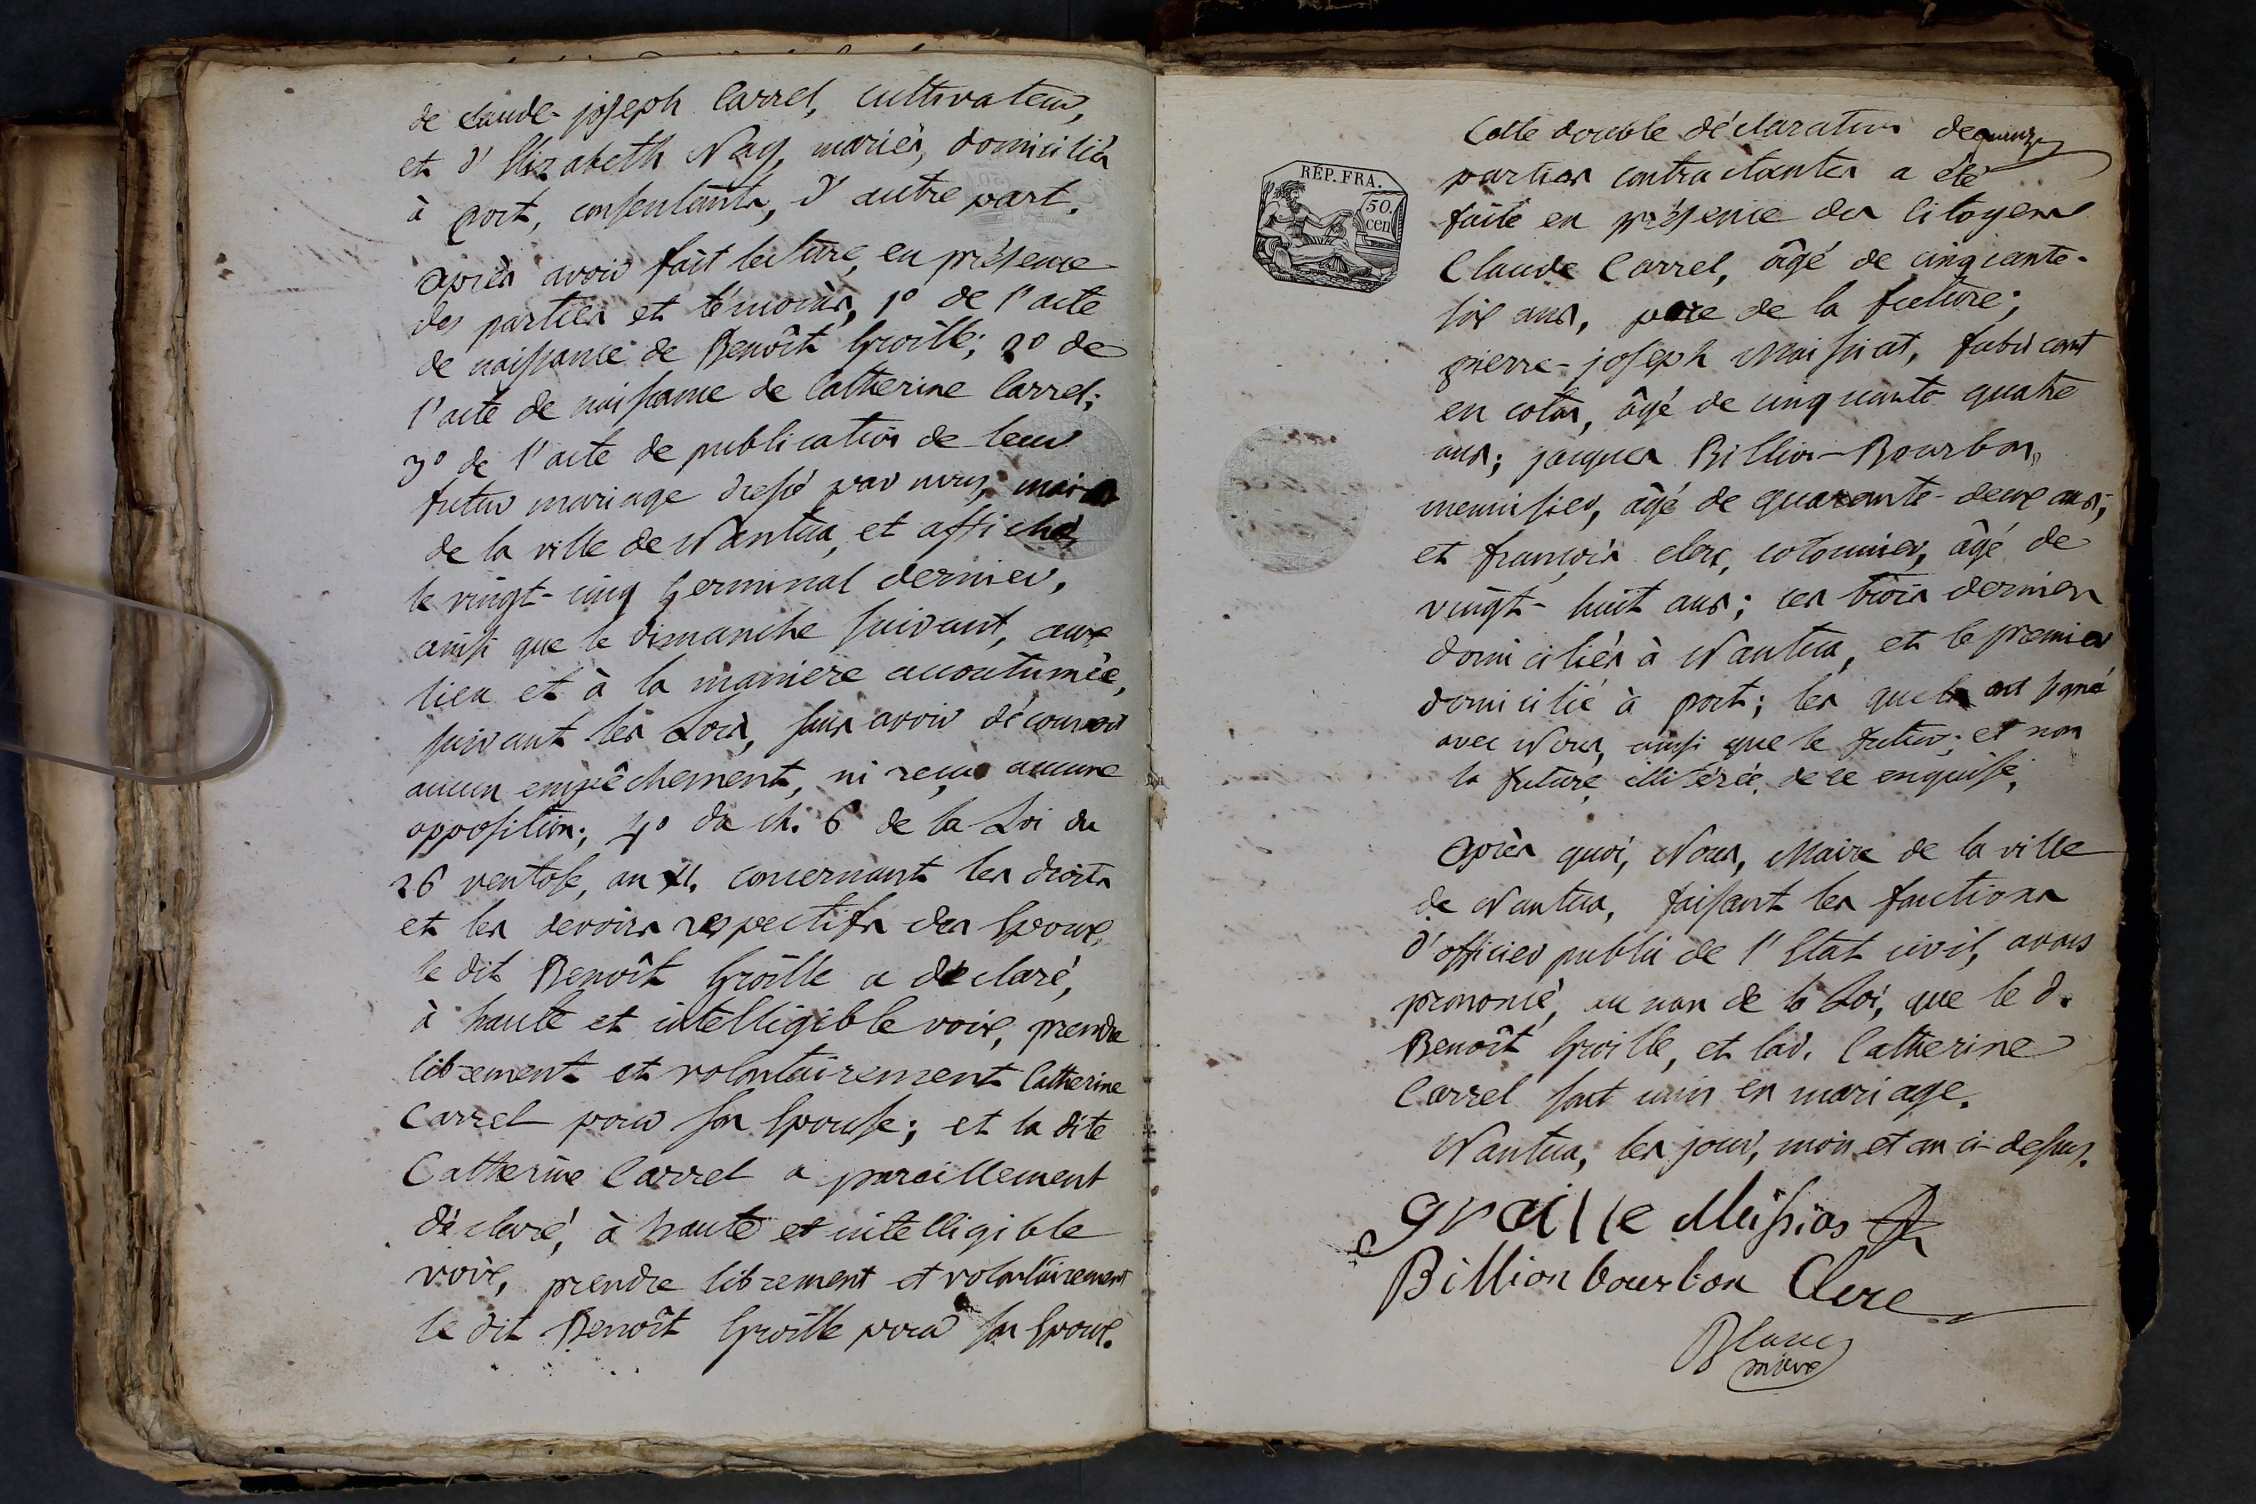 de claude-joseph Carrel, cultivateur,
et d'Elizabeth Nay, mariés, domiciliés
à port, consentants, d'autre part.
après avoir fait lecture, en présence
des parties et témoins, 1º de l'acte
de naissance de Benoît Groille; 2º de
l'acte de naissance de Catherine Carrel;
3º de l'acte de publication de leur
futur mariage dressé par nous, maire
de la ville de Nantua, et affiché
le vingt-cinq Germinal dernier,
ainsi que le dimanche suivant, aux
lieu et à la maniere accoutumée,
suivant les Lois, sans avoir découvert
aucun empêchement, ni reçu aucune
opposition; 4º du ch. 6 de la Loi du
26 ventose, an XI. concernant les droits
et les devoirs respectifs des Epoux,
le dit Benoît Groille a déclaré,
à haute et intelligible voix, prendre
librement et volontairement Catherine
Carrel pour son Epouse; et la dite
Catherine Carrel a pareillement
déclaré, à haute et intelligible
voix, prendre librement et volontairement
le dit Benoît Groille pour son Epoux.
RÉP. FRA.
50.
cen
Cette double déclaration de
parties contractantes a été
faite en présence des Citoyens
Claude Carrel, âgé de cinquante-
six ans, pere de la future;
pierre-joseph Maissiat, fabricant
en coton, âgé de cinquante quatre
ans; jacques Billion-Bourbon,
menuisier, âgé de quarante-deux ans;
et françois clerc, cotonnier, âgé de
vingt-huit ans; ces trois derniers
domiciliés à Nantua, et le premier
domicilié à port; les quels ont signé
avec Nous, ainsi que le futur; et non
la future, illitérée, de ce enquise.
après quoi, Nous, Maire de la ville
de Nantua, faisant les fonctions
d'officier public de l'Etat civil, avons
prononcé, au nom de la Loi, que le d.
Benoît Groille, et lad. Catherine
Carrel sont unis en mariage.
Nantua, les jour, mois et an ci-dessus.
graille
Billion bourbon Clerc
Blanc
maire